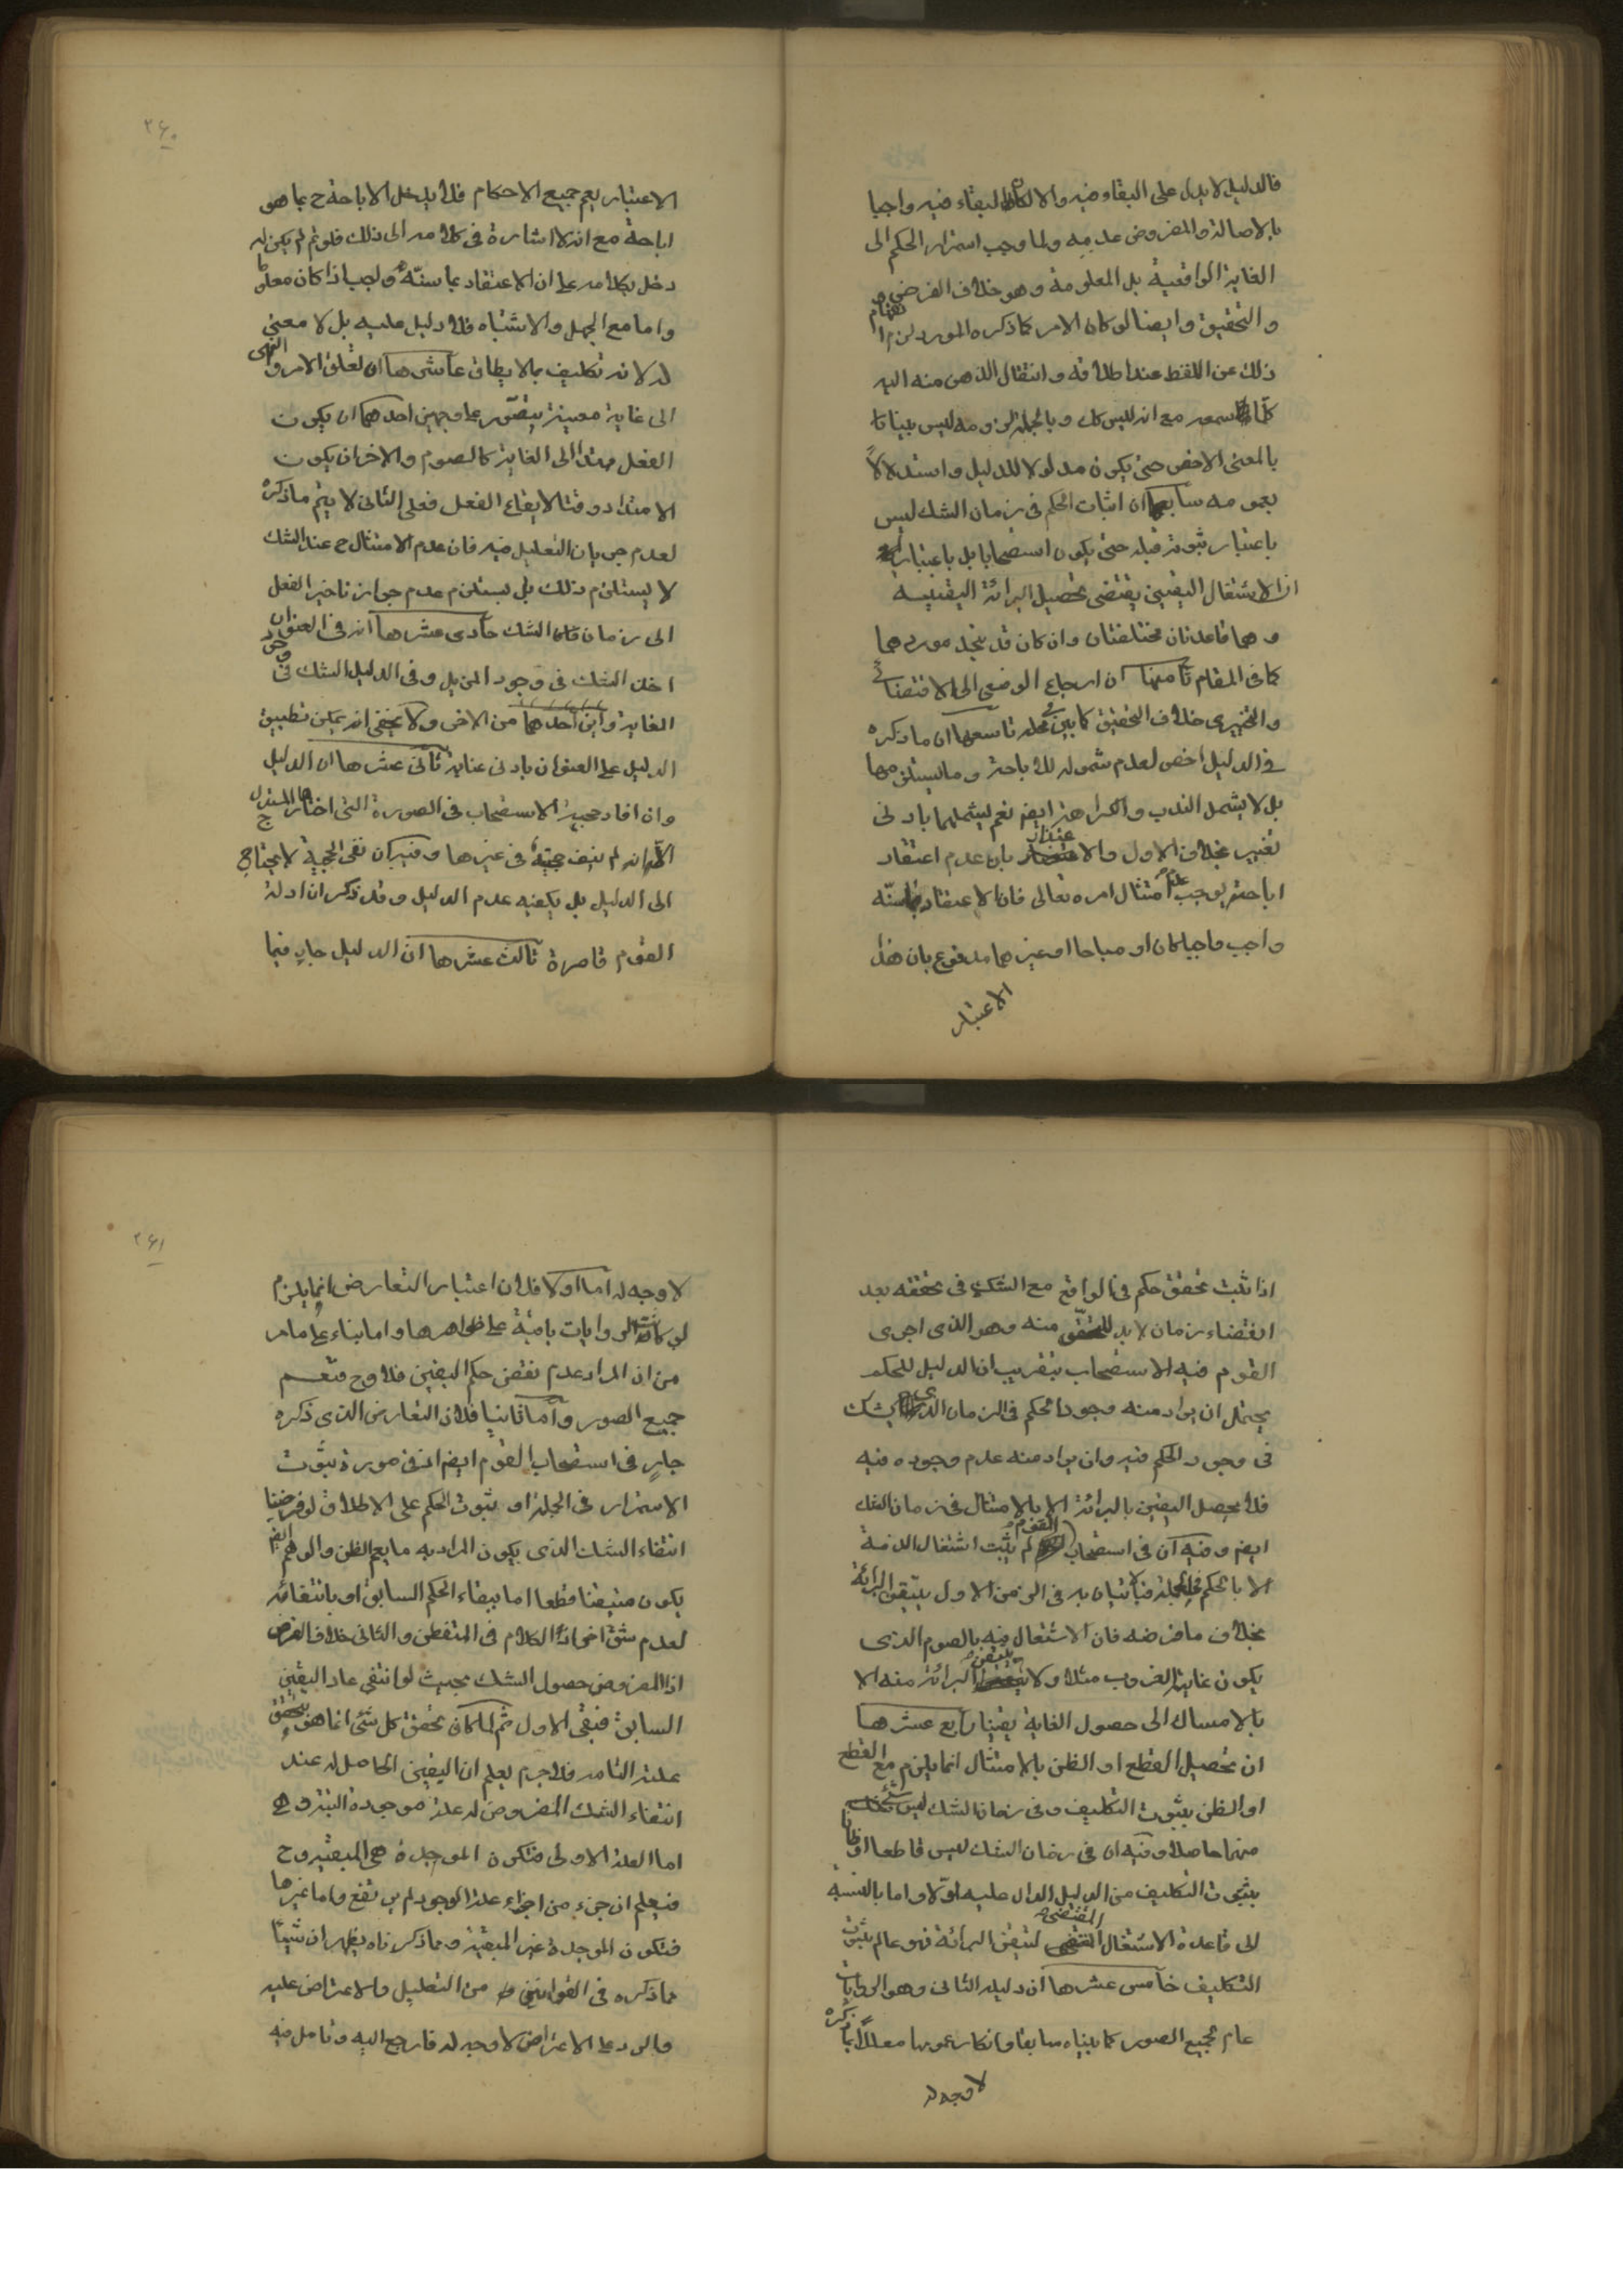 فالدليل لا يدل على البقاء فيه والا لكان البقاء فيه واجبا
بالاصالة والمفروض عدمه ولما وجب استمرار الحكم الى
الغاية الواقعية بل المعلومة وهو خلاف الفرض
والتحقيق وايضا لو كان الامر كما ذكره المورد لزم انفهام
ذلك عن اللفظ عند اطلاقه وانتقال الذهن منه اليه
كلما سمعه مع انه ليس كك وبالجملة لزومه ليس بينا
بالمعنى الاخص حتى يكون مدلولا للدليل واستدلالا
بعمومه سابعها ان اثبات الحكم فى زمان الشك ليس
باعتبار ثبوته قبله حتى يكون استصحابا بل باعتبار
ان الاشتغال اليقينى يقتضى تحصيل البرائة اليقينيه
وهما قاعدتان مختلفتان وان كان قد يتحد موردهما
كما فى المقام ثامنها ان ارجاع الوضعى الى الاقتضائى
والتخييرى خلاف التحقيق كما بين فى محله تاسعها ان ما ذكره
فى الدليل اخص لعدم شموله للاباحة وما يستلزمها
بل لا يشمل الندب والكراهة ايضا نعم يشملهما بادنى
تغيير بخلاف الاول والاعتذار بان عدم اعتقاد
اباحته يوجب عدم امتثال امره تعالى فان الاعتقاد بما سنّه
واجب واجبا كان او مباحا او غيرهما مدفوع بان هذا
الاعتبار
۲۶۰
الاعتبار يعم جميع الاحكام فلا يدخل الاباحة ح بما هو
اباحة مع انه لا اشارة فى كلامه الى ذلك فلو تم لم يكن له
دخل بكلامه على ان الاعتقاد بما سنّه واجب اذا كان معلوما
واما مع الجهل والاشتباه فلا دليل عليه بل لا معنى
له لانه تكليف بما لا يطاق عاشرها ان تعلق الامر والنهى
الى غاية معينة يتصور على وجهين احدهما ان يكون
الفعل ممتدا الى الغاية كالصوم والاخر ان يكون
الامتداد وقتا لايقاع الفعل فعلى الثانى لا يتم ما ذكره
لعدم جريان التعليل فيه فان عدم الامتثال ح عند الشك
لا يستلزم ذلك بل يستلزم عدم جواز تاخير الفعل
الى زمان الشك حادى عشرها انه فى العنوان
اخذ الشك فى وجود المزيل وفى الدليل الشك فى وجود
الغاية واين احدهما من الاخر ولا يخفى انه يمكن تطبيق
الدليل على العنوان بادنى عناية ثانى عشرها ان الدليل
وان افاد حجية الاستصحاب فى الصورة التى اختارها المستدل
الا انه لم ينف حجيته فى غيرها وفيه ان نفى الحجية لا يحتاج
الى الدليل بل يكفيه عدم الدليل وقد ذكر ان ادلة
القوم قاصرة ثالث عشرها ان الدليل جار فيما
اذا ثبت تحقق حكم فى الواقع مع الشك فى تحققه بعد
انقضاء زمان لا بد للتحقق منه وهو الذى اجرى
القوم فيه الاستصحاب بتقريب ان الدليل للحكم
يحتمل ان يراد منه وجود الحكم فى الزمان الذى يشك
فى وجود الحكم فيه وان يراد منه عدم وجوده فيه
فلا يحصل اليقين بالبرائة الا بالامتثال فى زمان الشك
ايضا وفيه ان فى استصحاب القوم لم يثبت اشتغال الذمة
الا بالحكم فى الجملة فبالاتيان به فى الزمن الاول يتيقن البرائة
بخلاف ما فرضه فان الاشتغال فيه بالصوم الذى
يكون غايته الغروب مثلا ولا يتيقن البرائة منه الا
بالامساك الى حصول الغاية يقينا رابع عشرها
ان تحصيل القطع او الظن بالامتثال انما يلزم مع القطع
او الظن بثبوت التكليف وفى زمان الشك ليس شئ
منهما حاصلا وفيه ان فى زمان الشك ليس قاطعا او ظانا
بثبوت التكليف من الدليل الدال عليه اولا واما بالنسبة
الى قاعدة الاشتغال المقتضى لتيقن البرائة فهو عالم بثبوت
التكليف خامس عشرها ان دليله الثانى وهو الروايات
عام لجميع الصور كما بيناه سابقا وانكار عمومها معللا بما ذكره
لا وجه له
۲۶۱
لا وجه له اما اولا فلان اعتبار التعارض انما يلزم
لو كانت الروايات باقية على ظواهرها واما بناء على ما مر
من ان المراد عدم نقض حكم اليقين فلا وح فتعم
جميع الصور واما ثانيا فلان التعارض الذى ذكره
جار فى استصحاب القوم ايضا اذ فى صورة ثبوت
الاستمرار فى الجملة او ثبوت الحكم على الاطلاق لو فرضنا
انتفاء الشك الذى يكون المراد به ما يعم الظن والوهم ايضا
يكون متيقنا قطعا اما ببقاء الحكم السابق او بانتفائه
لعدم شق اخر اذ الكلام فى المتفطن والثانى خلاف الفرض
اذ المفروض حصول الشك بحيث لو انتفى عاد اليقين
السابق فبقى الاول ثم لما كان تحقق كل شئ انما هو بتحقق
علته التامه فلا جرم يعلم ان اليقين الحاصل له عند
انتفاء الشك المفروض له علة موجودة البته وهى
اما العلة الاولى فتكون الموجدة هى المبقية وح
فيعلم ان جزء من اجزاء علة الوجود لم يرتفع واما غيرها
فتكون الموجدة غير المبقية ومما ذكرناه يظهر ان شيئا
مما ذكره فى القوانين من التعليل والاعتراض عليه
والرد على الاعتراض لا وجه له فارجع اليه وتامل فيه